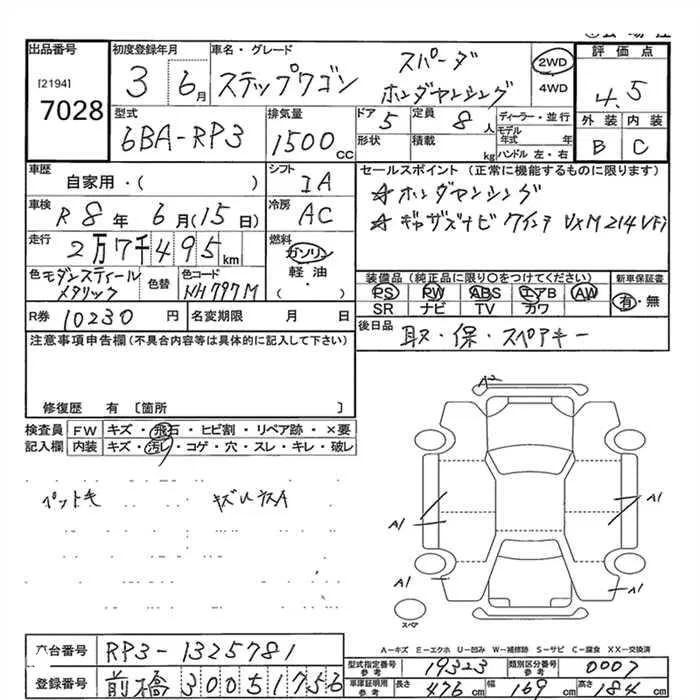 出品番号
[2194]
7028
初度登録年月
3 6月
車名・グレード
ステップワゴン スパーダ
ホンダセンシング
2WD
4WD
評価点
4.5
外装 内装
B C
型式
6BA-RP3
排気量
1500cc
ドア
5
形状
定員
8人
積載
kg
ディーラー・並行
モデル年式 年
ハンドル 左・右
車歴
自家用・( )
シフト
IA
車検
R8年6月(15日)
冷房
AC
走行
2万7千495km
燃料
ガソリン
軽油・
( )
セールスポイント (正常に機能するものに限ります)
☆ホンダセンシング
☆ギャザズナビ VXM214VFi
色 モダンスティールメタリック
色替
色コード
NH797M
装備品(純正品に限り〇をつけてください)
PS PW ABS エアB AW
SR ナビ TV カワ
新車保証書
有・無
R券 10230円
名変期限 月 日
後日品
取・保・スペアキー
注意事項申告欄(不具合内容等は具体的に記入して下さい)
修復歴 有〔箇所 〕
検査員記入欄
FW キズ・飛石・ヒビ割・リペア跡・×要
内装 キズ・汚レ・コゲ・穴・スレ・キレ・破レ
ペット毛
A2
A1
A1
A1
A1
スペア
A-キズ E-エクボ U-凹み W-補修跡 S-サビ C-腐食 XX-交換済
台番号
RP3-1325781
登録番号
前橋 300 5 1756
型式指定番号
参考
19323
類別区分番号
参考
0007
車庫証明用
参考
長さ 476cm
幅 169cm
高さ 184cm